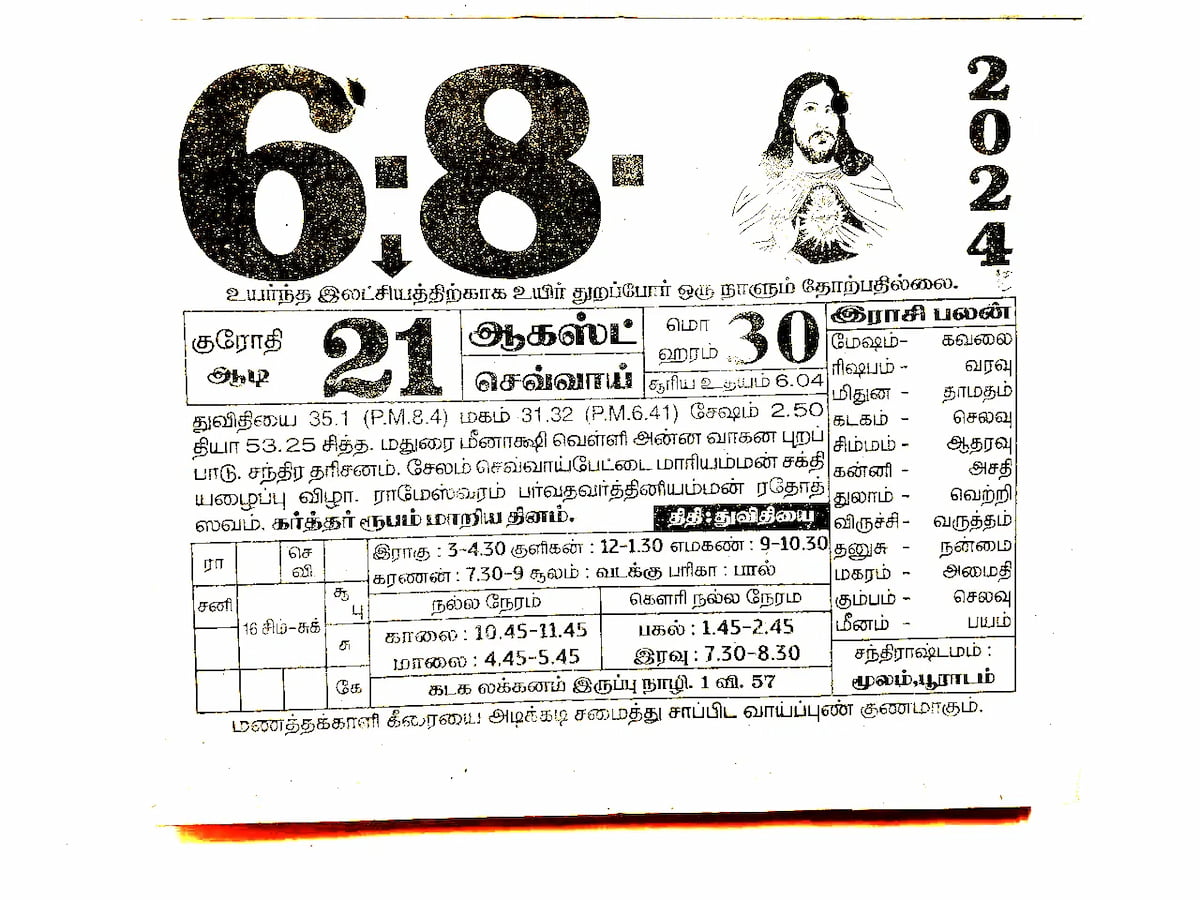 6.8.
2024
உயர்ந்த இலட்சியத்திற்காக உயிர் துறப்போர் ஒரு நாளும் தோற்பதில்லை.
குரோதி
ஆடி
21
ஆகஸ்ட்
செவ்வாய்
மொ
ஹரம்
30
சூரிய உதயம் 6.04
துவிதியை 35.1 (P.M.8.4) மகம் 31.32 (P.M.6.41) சேஷம் 2.50
தியா 53.25 சித்த. மதுரை மீனாக்ஷி வெள்ளி அன்ன வாகன புறப்
பாடு. சந்திர தரிசனம். சேலம் செவ்வாய்பேட்டை மாரியம்மன் சக்தி
யழைப்பு விழா. ராமேஸ்வரம் பர்வதவர்த்தினியம்மன் ரதோத்
ஸவம். கர்த்தர் ரூபம் மாறிய தினம்.
திதி : துவிதியை
இராசி பலன்
மேஷம்- கவலை
ரிஷபம் - வரவு
மிதுன - தாமதம்
கடகம் - செலவு
சிம்மம் - ஆதரவு
கன்னி - அசதி
துலாம் - வெற்றி
விருச்சி- வருத்தம்
தனுசு - நன்மை
மகரம் - அமைதி
கும்பம் - செலவு
மீனம் - பயம்
சந்திராஷ்டமம் :
மூலம்,பூராடம்
ரா
செ
வி
சனி
16 சிம்-சுக்
சூ
பு
சு
கே
இராகு : 3-4.30 குளிகன் : 12-1.30 எமகண் : 9-10.30
கரணன் : 7.30-9 சூலம் : வடக்கு பரிகா : பால்
நல்ல நேரம்
காலை : 10.45-11.45
மாலை : 4.45-5.45
கௌரி நல்ல நேரம
பகல் : 1.45-2.45
இரவு : 7.30-8.30
கடக லக்கனம் இருப்பு நாழி. 1 வி. 57
மணத்தக்காளி கீரையை அடிக்கடி சமைத்து சாப்பிட வாய்ப்புண் குணமாகும்.